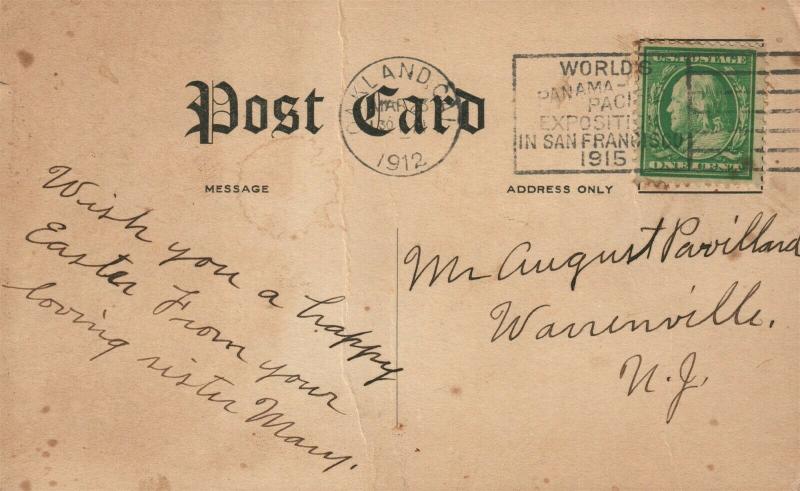 Post Card
OAKLAND, CAL
MAR 23
1912
WORLD'S
PANAMA-
PACIFIC
EXPOSITION
IN SAN FRANCISCO
1915
U.S. POSTAGE
ONE CENT
MESSAGE
ADDRESS ONLY
Wish you a happy
Easter From your
loving sister Mary.
Mr August Pavillard
Warrenville.
N.J.